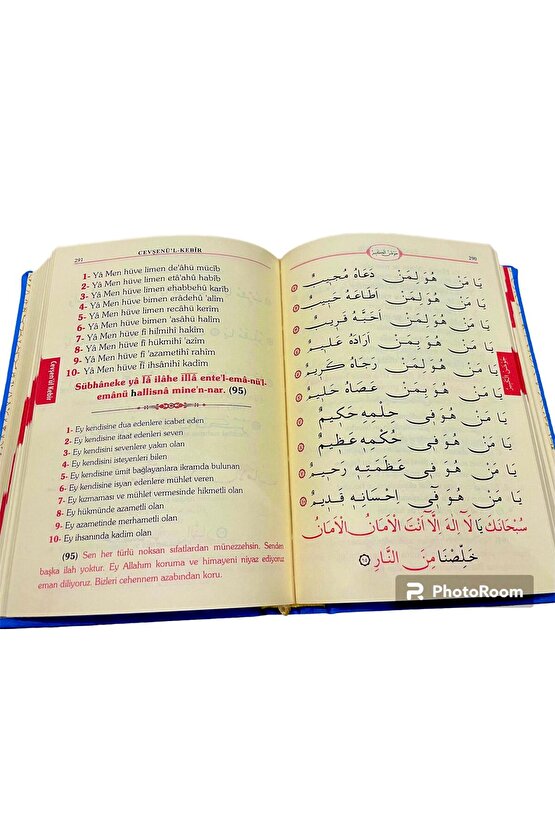 291
CEVŞENÜ'L-KEBÎR
1- Yâ Men hüve limen de'âhü mücîb
2- Yâ Men hüve limen etâ'ahû habîb
3- Yâ Men hüve limen ehabbehû karîb
4- Yâ Men hüve bimen erâdehû 'alîm
5- Yâ Men hüve limen recâhü kerîm
6- Yâ Men hüve bimen 'asâhü halîm
7- Yâ Men hüve fî hilmihî hakîm
8- Yâ Men hüve fî hükmihî 'azîm
9- Yâ Men hüve fî 'azametihî rahîm
10- Yâ Men hüve fî ihsânihî kadîm
Sübhâneke yâ lâ ilâhe illâ ente'l-emâ-nü'l-
emânü hallisnâ mine'n-nar. (95)
1- Ey kendisine dua edenlere icabet eden
2- Ey kendisine itaat edenleri seven
3- Ey kendisini sevenlere yakın olan
4- Ey kendisini isteyenleri bilen
5- Ey kendisine ümit bağlayanlara ikramda bulunan
6- Ey kendisine isyan edenlere mühlet veren
7- Ey kızmaması ve mühlet vermesinde hikmetli olan
8- Ey hükmünde azametli olan
9- Ey azametinde merhametli olan
10- Ey ihsanında kadim olan
(95) Sen her türlü noksan sıfatlardan münezzehsin. Senden
başka ilah yoktur. Ey Allahım koruma ve himayeni niyaz ediyoruz
eman diliyoruz. Bizleri cehennem azabından koru.
Cevşenü'l Kebîr
جَوْشَنُ الْكَبِيرْ
290
يَا مَنْ هُوَ لِمَنْ دَعَاهُ مُجِيبٌ
يَا مَنْ هُوَ لِمَنْ اَطَاعَهُ
يَا مَنْ هُوَ لِمَنْ اَحَبَّهُ قَرِيبٌ
يَا مَنْ هُوَ بِمَنْ اَرَادَهُ
يَا مَنْ هُوَ لِمَنْ رَجَاهُ كَرِيمٌ
يَا مَنْ هُوَ بِمَنْ عَصَاهُ
يَا مَنْ هُوَ فِي حِلْمِهِ حَكِيمٌ
يَا مَنْ هُوَ فِي حُكْمِهِ عَظِيمٌ
يَا مَنْ هُوَ فِي عَظَمَتِهِ رَحِيمٌ
يَا مَنْ هُوَ فِي اِحْسَانِهِ قَدِيمٌ
سُبْحَانَكَ يَا لَا اِلٰهَ اِلَّا اَنْتَ الْاَمَانُ الْاَمَانُ
خَلِّصْنَا مِنَ النَّارِ
جَوْشَنُ الْكَبِيرْ
PhotoRoom